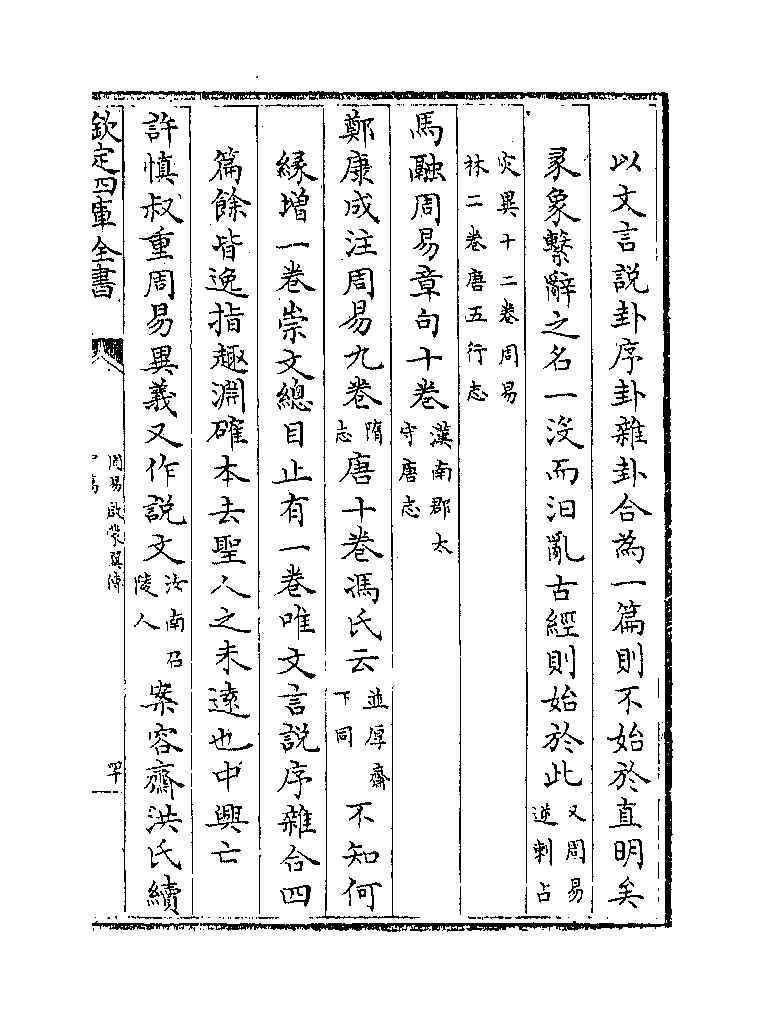 以文言説卦序卦雜卦合為一篇則不始於直明矣
彖象繫辭之名一没而汨亂古經則始於此又周易
逆刺占
灾異十二卷周易
林二卷唐五行志
馬融周易章句十卷漢南郡太
守唐志
鄭康成注周易九卷隋
志唐十卷馮氏云並厚齋
下同不知何
縁增一卷崇文總目止有一卷唯文言説序雜合四
篇餘皆逸指趣淵確本去聖人之未逺也中興亡
許慎叔重周易異義又作説文汝南召
陵人案容齋洪氏續
欽定四庫全書
周易啟蒙翼傳
中篇
四十